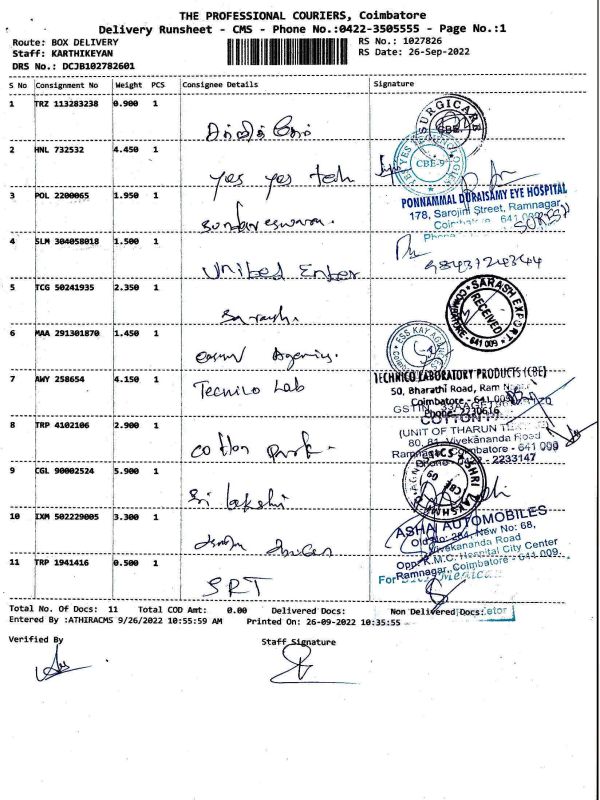 THE PROFESSIONAL COURIERS, Coimbatore
Delivery Runsheet - CMS - Phone No.:0422-3505555 - Page No.:1
Route: BOX DELIVERY
RS No.: 1027826
Staff: KARTHIKEYAN
RS Date: 26-Sep-2022
DRS No.: DCJB102782601
S No Consignment No Weight PCS Consignee Details Signature
1 TRZ 113283238 0.900 1
SURGICARE
CBE
2 HNL 732532 4.450 1
yes yes tech
CBE-9
3 POL 2200065 1.950 1
sundareswara.
PONNAMMAL DURAISAMY EYE HOSPITAL
178, Sarojini Street, Ramnagar,
Coimbatore - 641 009
Phone
SURESH
4 SLM 304058018 1.500 1
United Enter
98431 24344
5 TCG 50241935 2.350 1
Sarash.
SARASH EXPORT
RECEIVED
COIMBATORE - 641 009
6 MAA 291301870 1.450 1
Agencies.
ESS KAY AGENCIES
7 AWY 258654 4.150 1
Tecnico Lab
TECHNICO LABORATORY PRODUCTS (CBE)
50, Bharathi Road, Ram Nagar
Coimbatore - 641 009
Phone- 2230616
8 TRP 4102106 2.900 1
cotton park-
COTTON
(UNIT OF THARUN
80, 81, Vivekananda Road
Ramnagar, Coimbatore - 641 009
Phone - 2233147
9 CGL 90002524 5.900 1
Sri lakshi
SHRI LAKSHMI
CBE 09
10 IXM 502229005 3.300 1
ASHAI AUTOMOBILES
Old No: 284, New No: 68,
Vivekananda Road
Opp. K.M.C. Hospital City Center
Ramnagar, Coimbatore - 641 009.
11 TRP 1941416 0.500 1
SRT
For
Total No. Of Docs: 11 Total COD Amt: 0.00 Delivered Docs: Non Delivered Docs:
Entered By :ATHIRACMS 9/26/2022 10:55:59 AM Printed On: 26-09-2022 10:35:55
Verified By Staff Signature